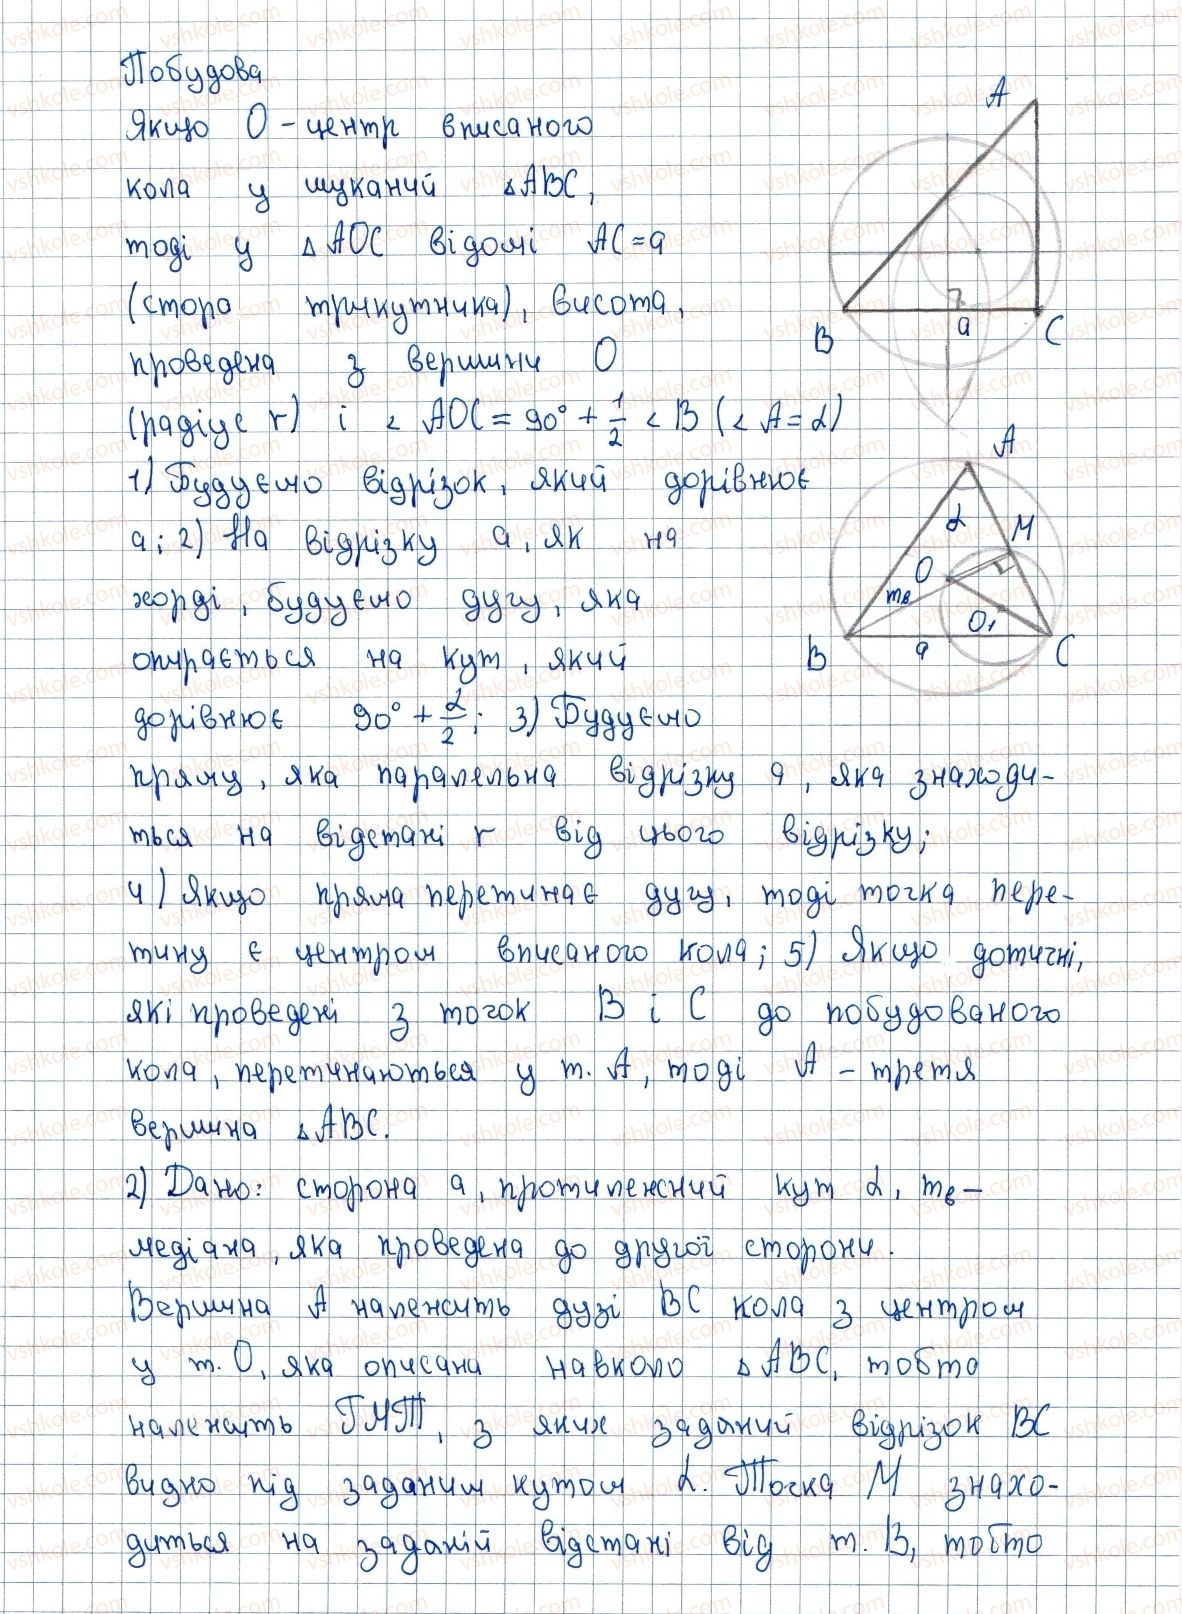 Побудова
Якщо О - центр вписаного
кола у шуканий △АВС,
тоді у △АОС відомі АС = а
(сторо трикутника), висота,
проведена з вершини О
(радіус r) і < АОС = 90° + 1/2 < В (< А = α)
1) Будуємо відрізок, який дорівнює
а; 2) На відрізку а, як на
хорді, будуємо дугу, яка
опирається на кут, який
дорівнює 90° + α/2; 3) Будуємо
пряму, яка паралельна відрізку а, яка знаходи-
ться на відстані r від цього відрізку;
4) Якщо пряма перетинає дугу, тоді точка пере-
тину є центром вписаного кола; 5) Якщо дотичні,
які проведені з точок В і С до побудованого
кола, перетинаються у т. А, тоді А - третя
вершина △АВС.
2) Дано: сторона а, протилежний кут α, mв -
медіана, яка проведена до другої сторони.
Вершина А належить дузі ВС кола з центром
у т. О, яка описана навколо △АВС, тобто
належить ГМТ, з яких заданий відрізок ВС
видно під заданим кутом α. Точка М знахо-
диться на заданій відстані від т. В, тобто
А
В
а
С
А
α
М
О
mв
О₁
В
а
С
vshkole.com